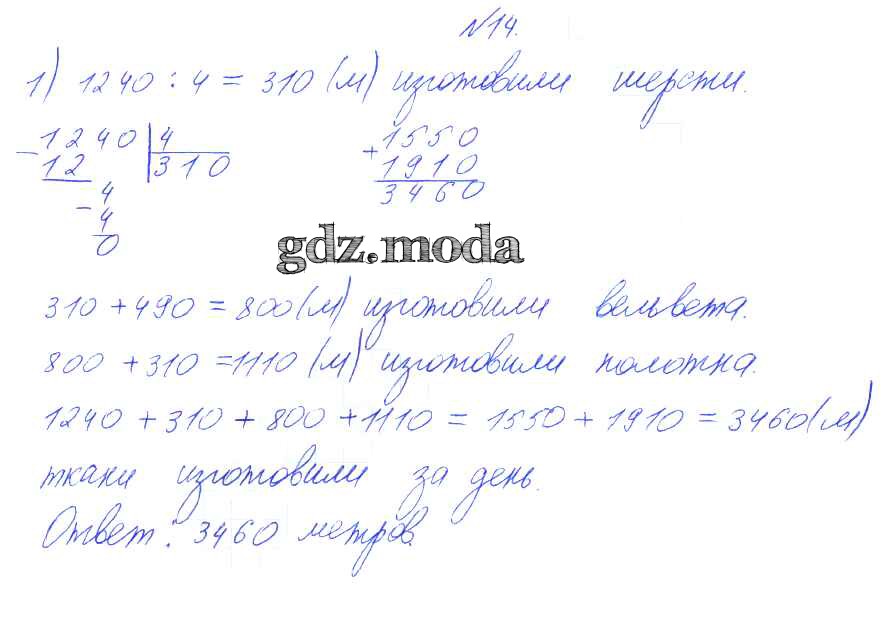 №14.
1) 1240 : 4 = 310 (м) изготовили шерсти.
1240 4
- 12 310
- 4
4
0
1550
+ 1910
3460
gdz.moda
310 + 490 = 800 (м) изготовили вельвета.
800 + 310 = 1110 (м) изготовили полотна.
1240 + 310 + 800 + 1110 = 1550 + 1910 = 3460 (м)
ткани изготовили за день.
Ответ: 3460 метров.